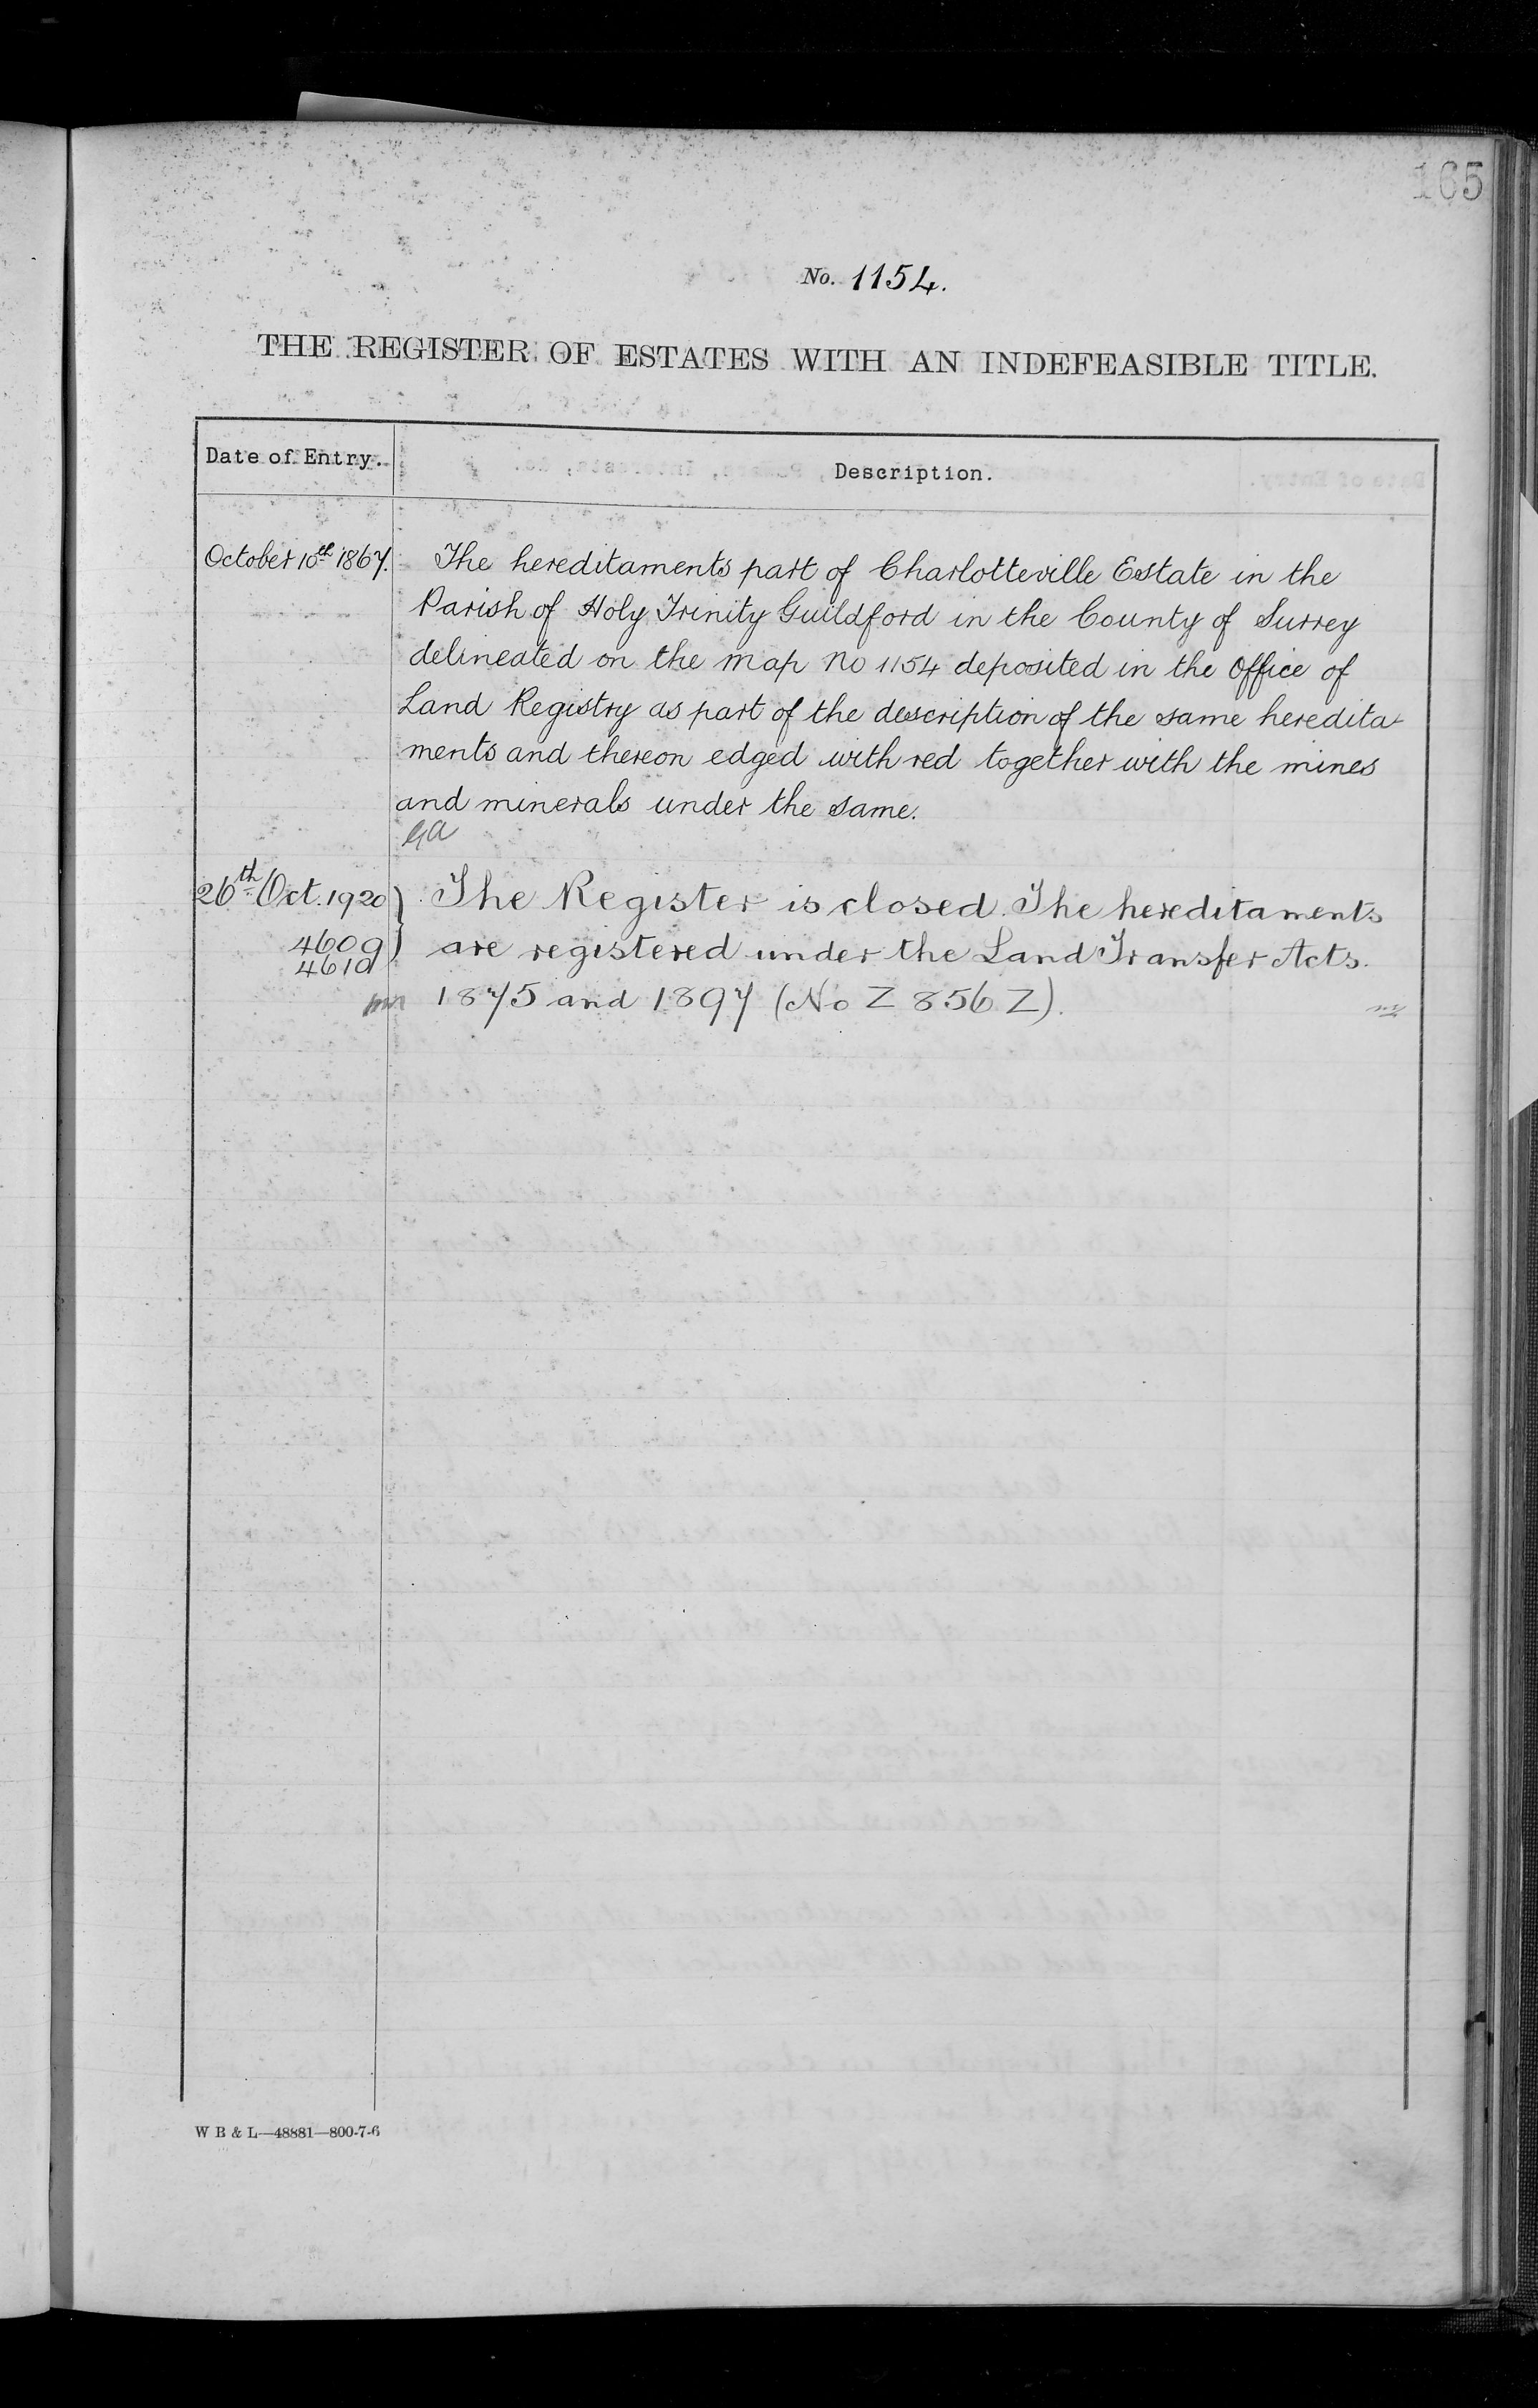 165
No. 1154.
THE REGISTER OF ESTATES WITH AN INDEFEASIBLE TITLE.
Date of Entry.
Description.
October 10th 1867.
The hereditaments part of Charlotteville Estate in the
Parish of Holy Trinity Guildford in the County of Surrey
delineated on the map No 1154 deposited in the Office of
Land Registry as part of the description of the same heredita-
ments and thereon edged with red together with the mines
and minerals under the same.
GA
26th Oct. 1920
4609
4610
The Register is closed. The hereditaments
are registered under the Land Transfer Acts.
1875 and 1897 (No Z 856 Z).
W B & L—48881—800-7-6